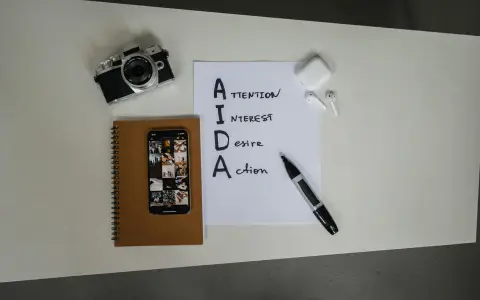 ATTENTION
INTEREST
Desire
Action